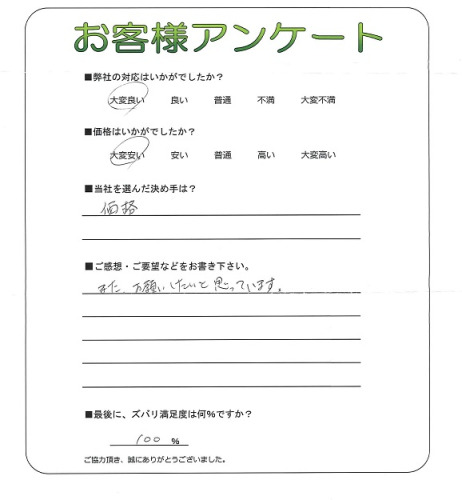 お客様アンケート
■弊社の対応はいかがでしたか？
大変良い 良い 普通 不満 大変不満
■価格はいかがでしたか？
大変安い 安い 普通 高い 大変高い
■当社を選んだ決め手は？
価格
■ご感想・ご要望などをお書き下さい。
また、お願いしたいと思っています。
■最後に、ズバリ満足度は何％ですか？
100 ％
ご協力頂き、誠にありがとうございました。